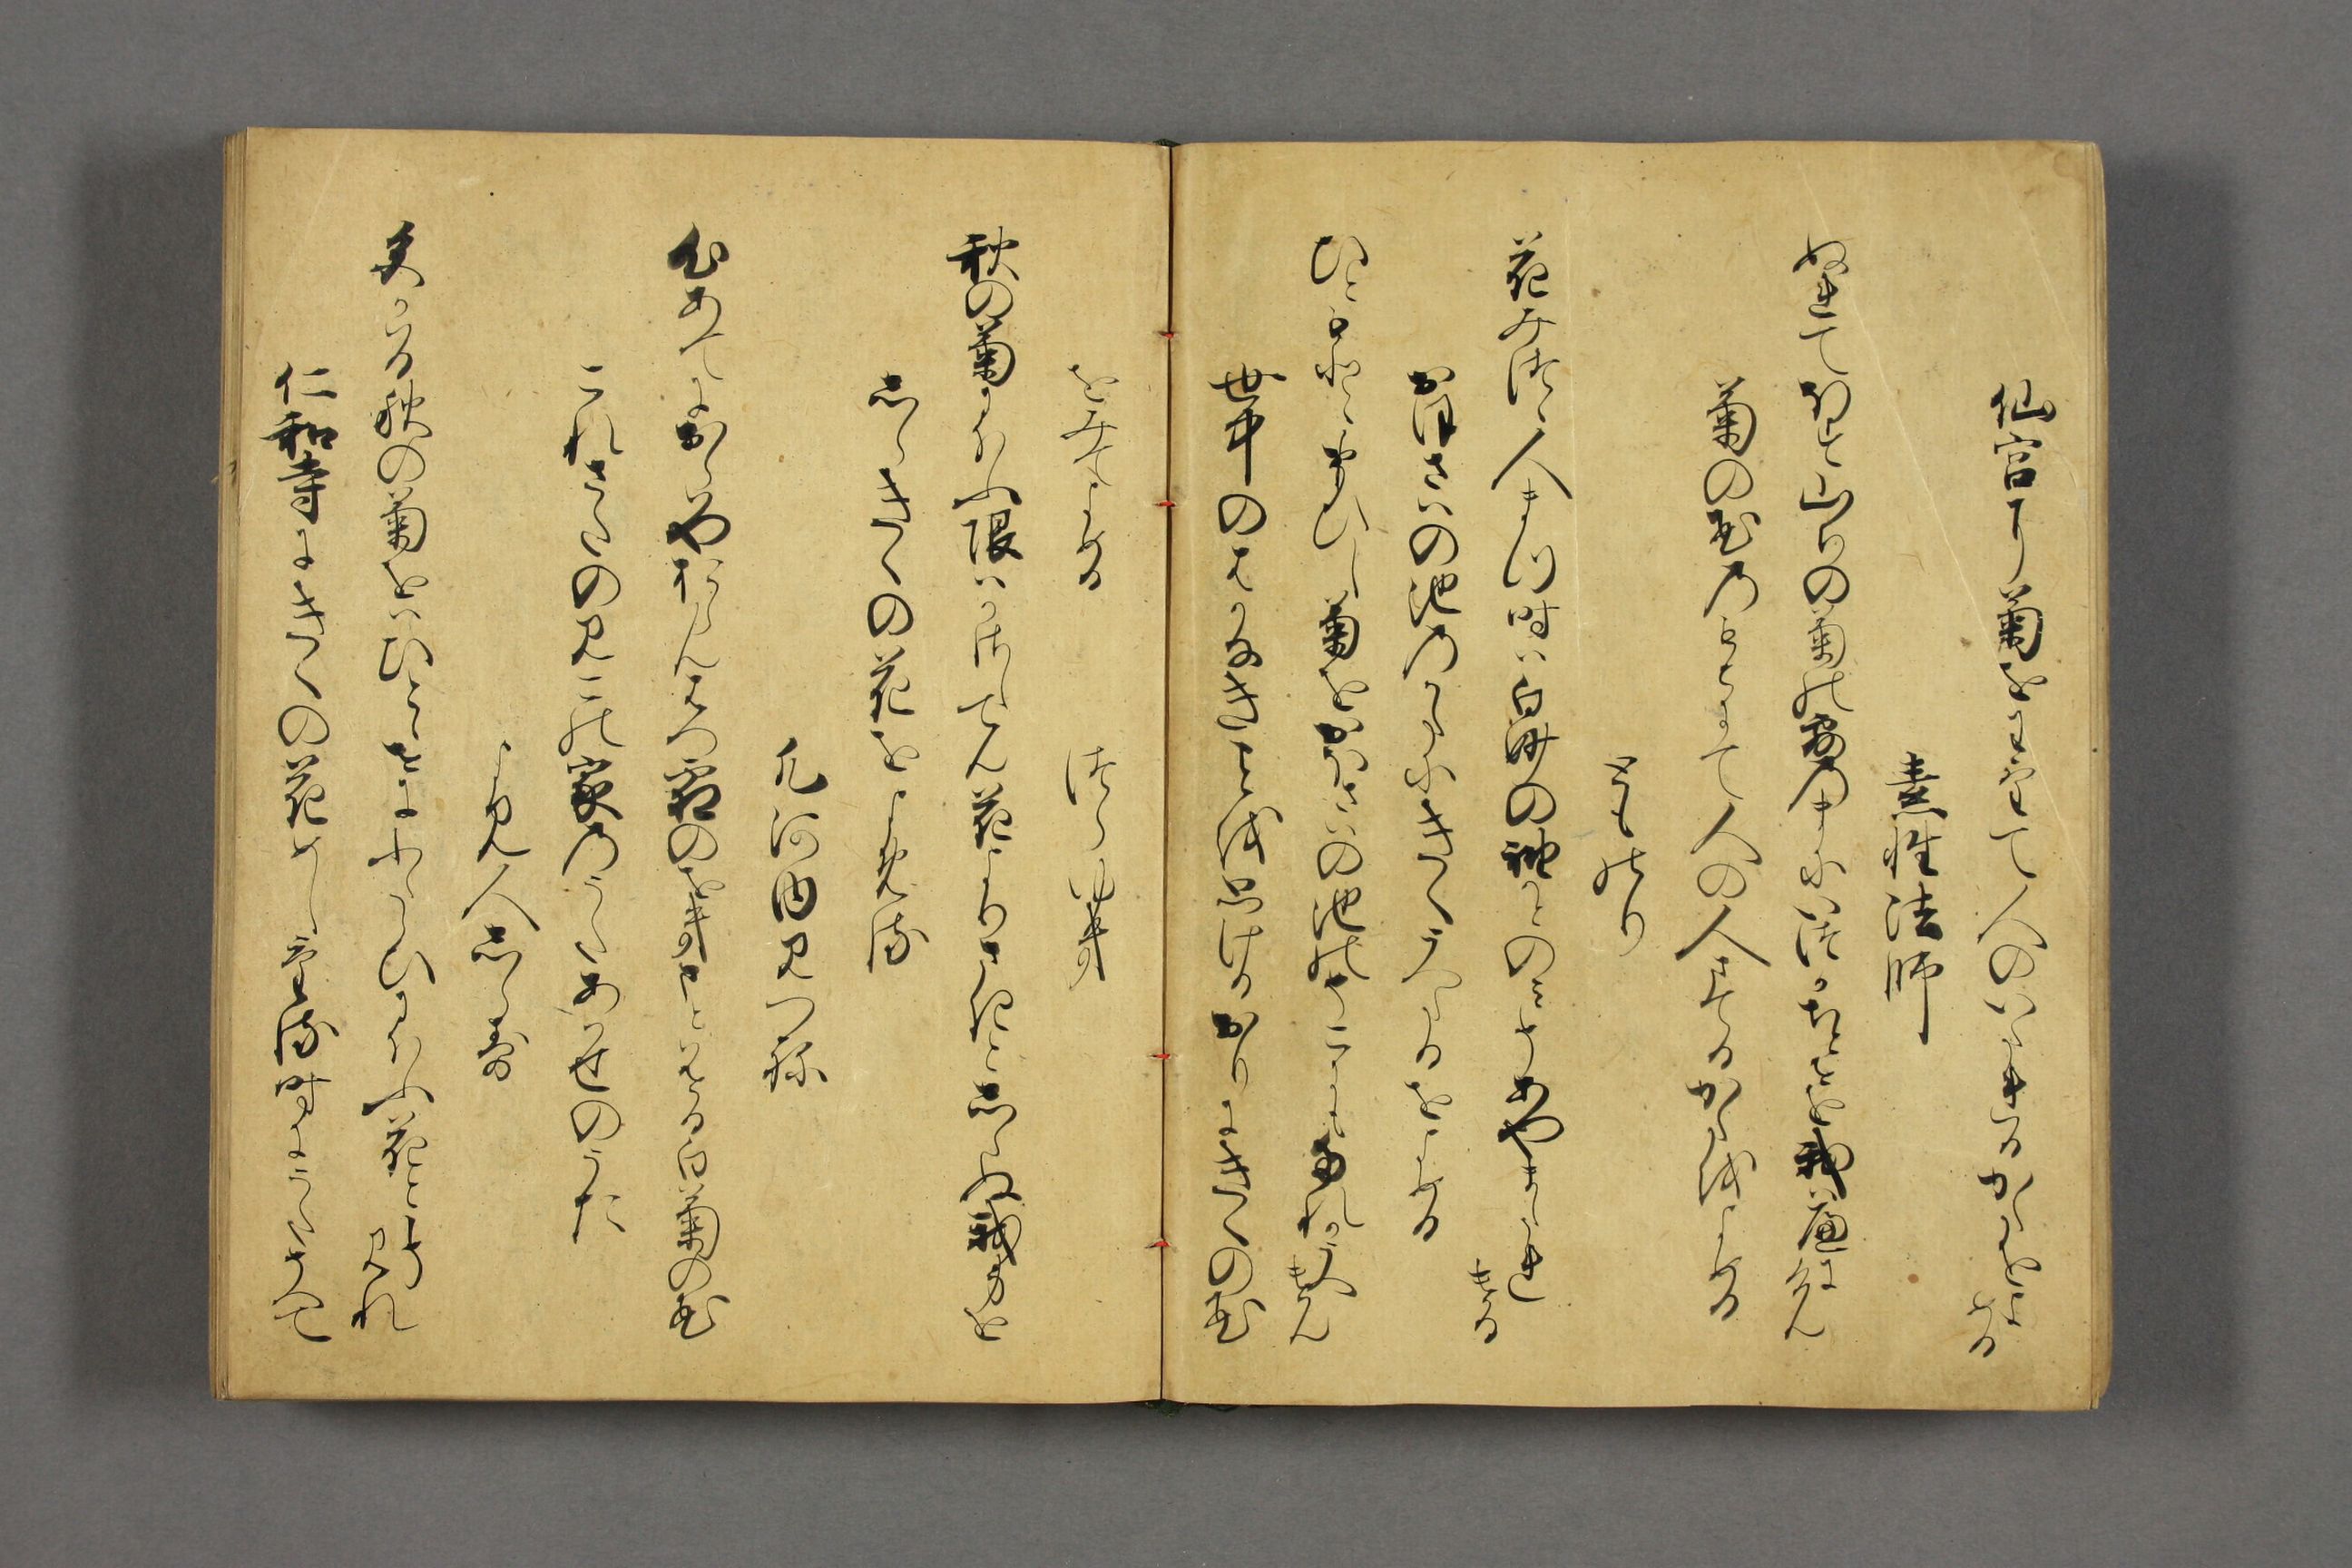 仙宮に菊をわけて人のいたれるかたをよ
める
素性法師
ぬれてほす山ちの菊の露のまにいつかちとせを我はへにけん
菊の花のもとにて人の人まてるかたをよめる
とものり
花みつゝ人まつ時は白妙の袖かとのみそあやまたれ
ける
おほさはの池のかたにきくうへたるをよめる
ひともとゝおもひし菊をおほさはの池のそこにもたれかうへ
けん
世中のはかなきことを思けるおりにきくの花
をみてよめる
つらゆき
秋の菊にほふ限はかさしてん花よりさきとしらぬ我身を
しらきくの花をよめる
凡河内みつね
心あてにおらはやおらんはつ霜のをきまとはせる白菊の花
これさたのみこの家のうたあはせのうた
よみ人しらす
色かはる秋の菊をはひとゝせにふたゝひにほふ花とこそ
みれ
仁和寺にきくの花めしける時にうたそへて